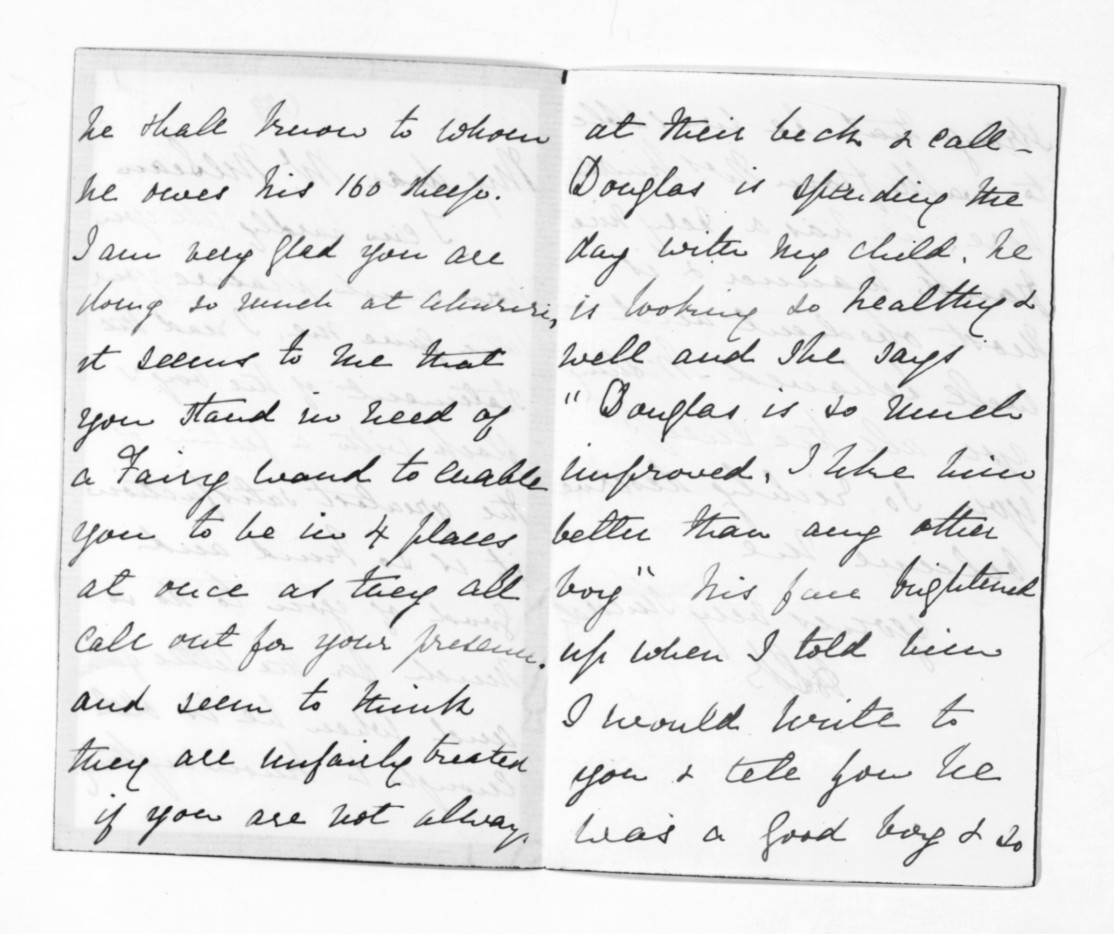 he shall know to whom
he owes his 160 sheep.
I am very glad you are
doing so much at Ahuriri,
it seems to me that
you stand in need of
a Fairy wand to enable
you to be in 4 places
at once as they all
call out for your presence.
and seem to think
they are unfairly treated
if you are not always
at their beck & call -
Douglas is spending the
day with my child. he
is looking so healthy &
well and she says
" Douglas is so much
improved. I like him
better than any other
boy" his face brightened
up when I told him
I would write to
you & tell you he
was a good boy & so